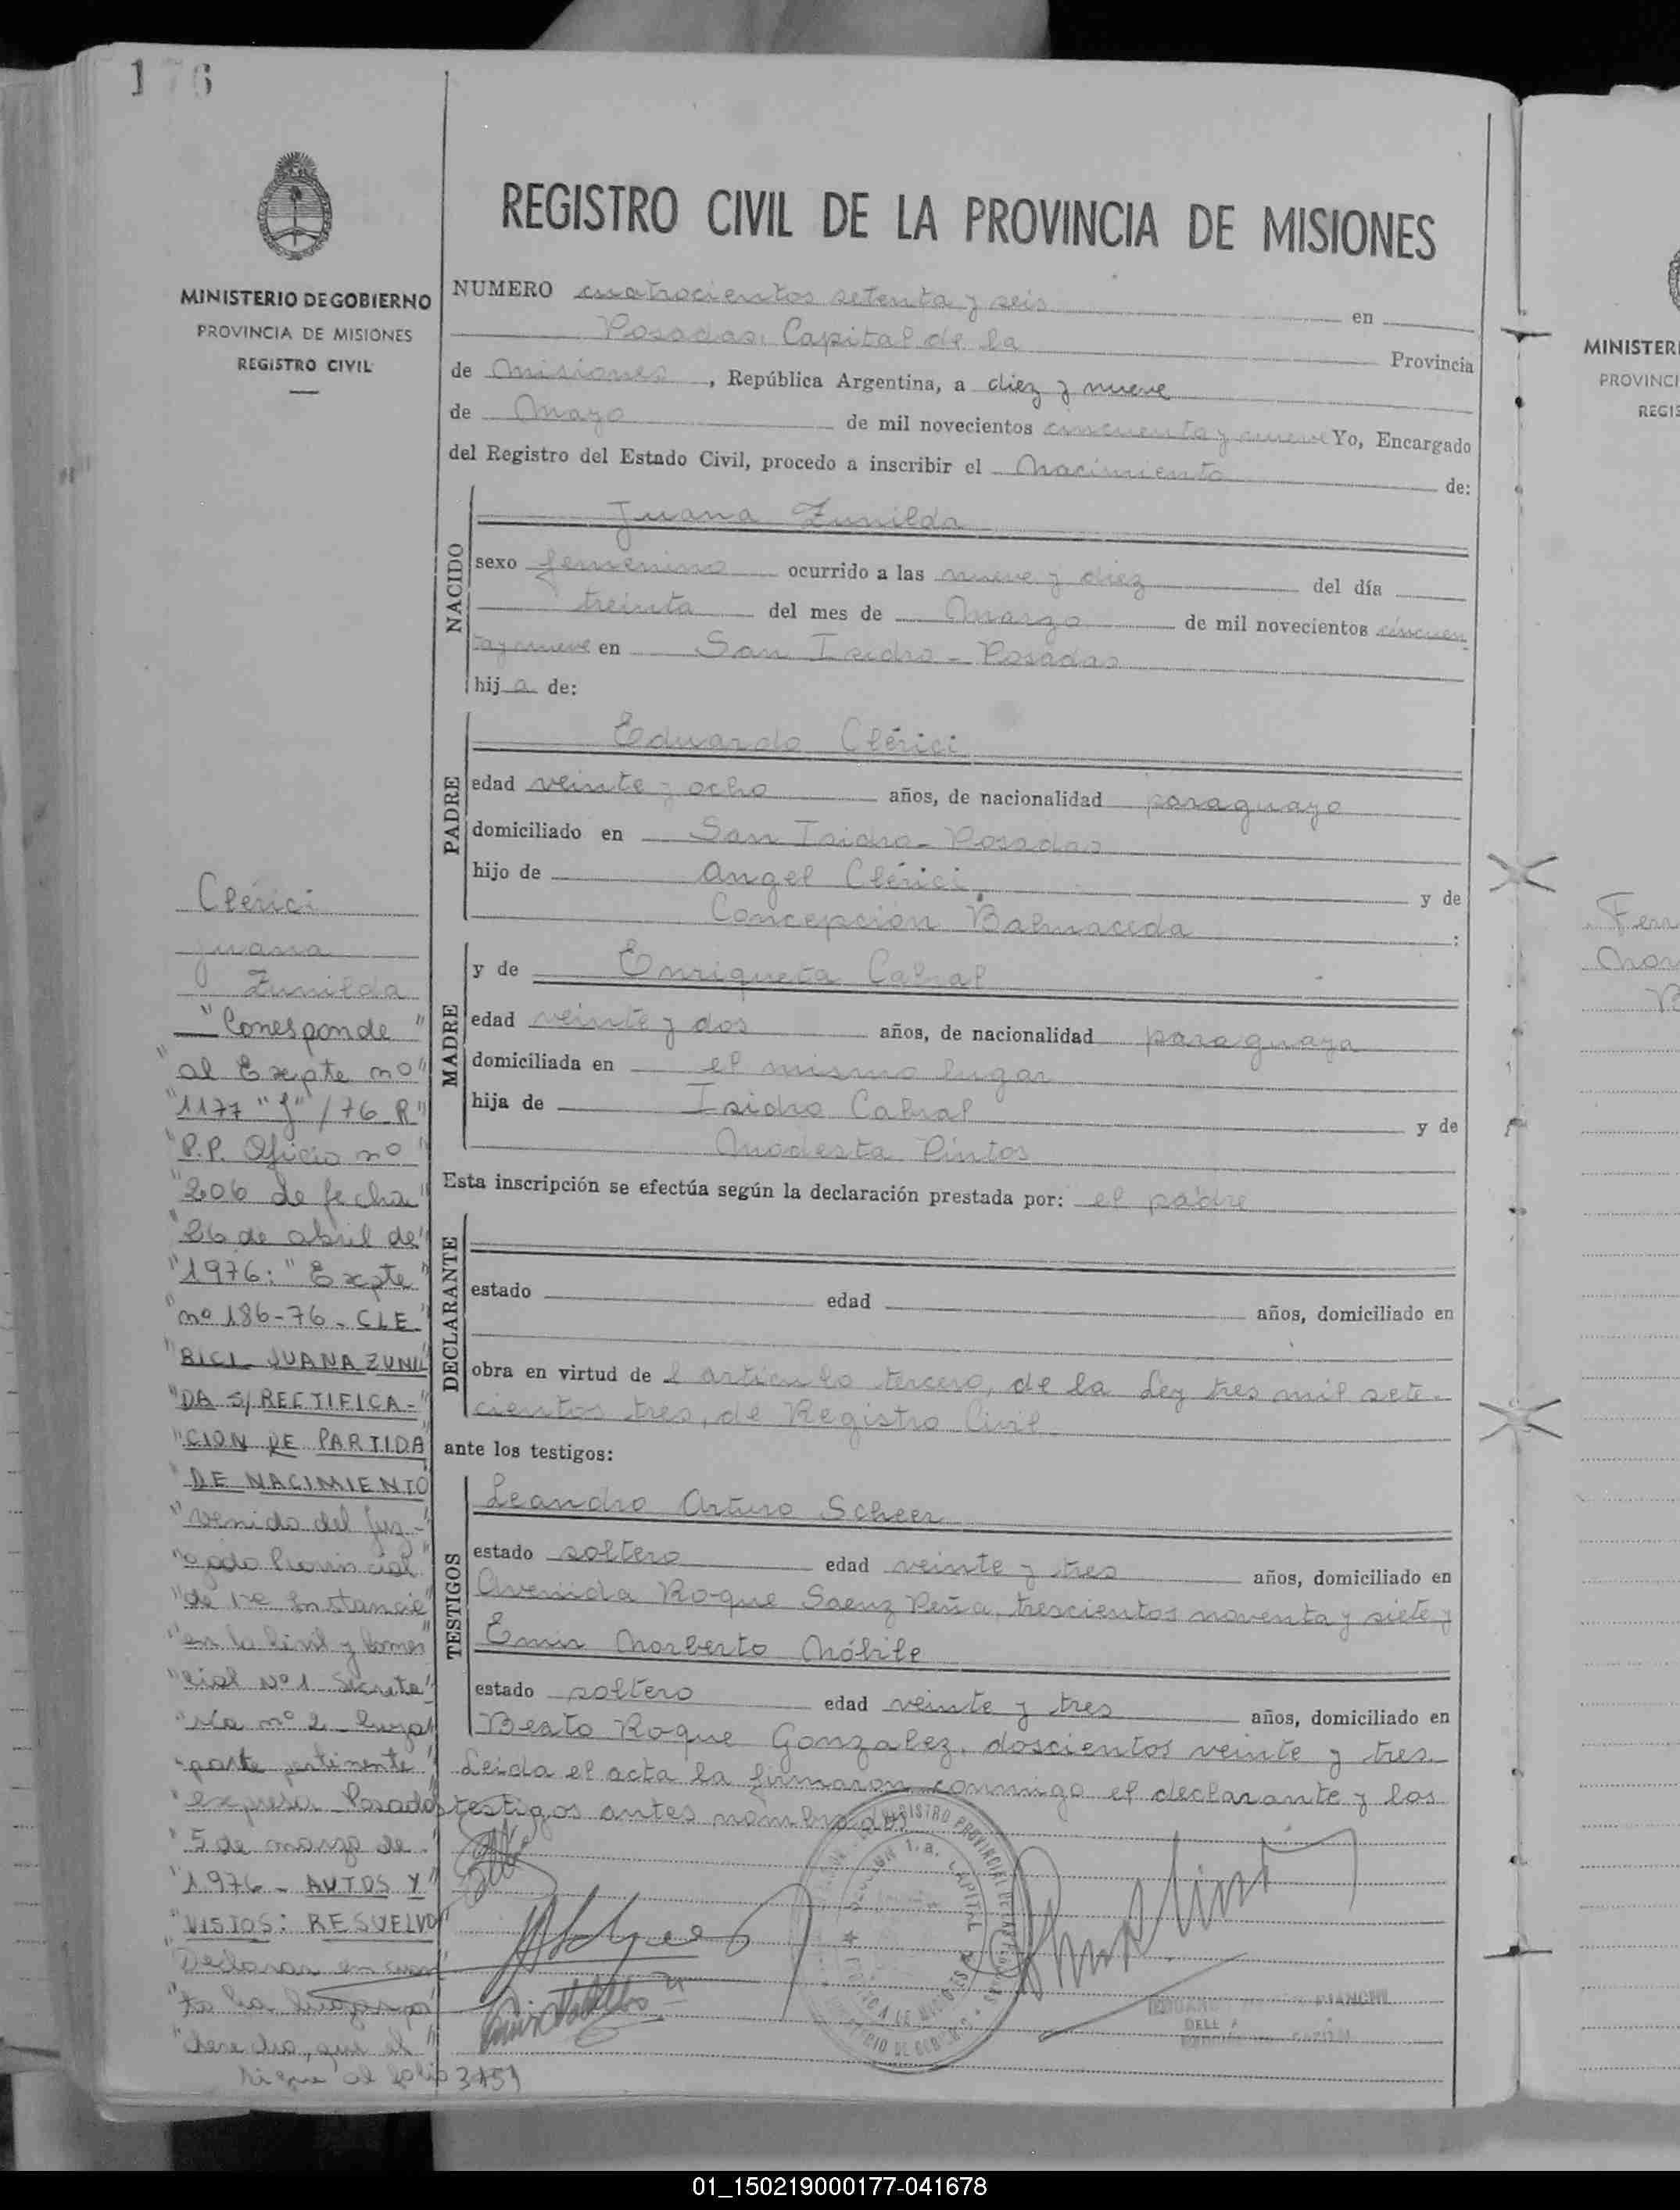 176
REGISTRO CIVIL DE LA PROVINCIA DE MISIONES
MINISTERIO DE GOBIERNO
PROVINCIA DE MISIONES
REGISTRO CIVIL
NUMERO cuatrocientos setenta y seis en
Posadas, Capital de la Provincia
de Misiones, República Argentina, a diez y nueve
de Mayo de mil novecientos cincuenta y nueve Yo, Encargado
del Registro del Estado Civil, procedo a inscribir el Nacimiento de:
NACIDO
Juana Zunilda
sexo femenino ocurrido a las nueve y diez del día
treinta del mes de Marzo de mil novecientos cincuen
ta y nueve en San Isidro - Posadas
hija de:
PADRE
Eduardo Clérici
edad veinte y ocho años, de nacionalidad paraguayo
domiciliado en San Isidro - Posadas
hijo de Angel Clérici, y de
Concepción Balmaceda :
MADRE
y de Enriqueta Cabral
edad veinte y dos años, de nacionalidad paraguaya
domiciliada en el mismo lugar
hija de Isidro Cabral y de
Modesta Pintos
Esta inscripción se efectúa según la declaración prestada por: el padre
DECLARANTE
estado edad años, domiciliado en
obra en virtud de l artículo tercero, de la Ley tres mil sete-
cientos tres, de Registro Civil
ante los testigos:
TESTIGOS
Leandro Arturo Scheer
estado soltero edad veinte y tres años, domiciliado en
Avenida Roque Saenz Peña, trescientos noventa y siete y
Emir Norberto Nóbile
estado soltero edad veinte y tres años, domiciliado en
Beato Roque Gonzalez, doscientos veinte y tres.
Leida el acta la firmaron conmigo el declarante y los
testigos antes nombrados
Clérici
Juana
Zunilda
"Corresponde"
"al Expte nº"
"1177 "J" /76 R"
"P.P. Oficio nº"
"206 de fecha"
"26 de abril de"
"1976: "Expte"
"nº 186-76 - CLE"
"RICI JUANA ZUNIL"
"DA S/ RECTIFICA-"
"CION DE PARTIDA
"DE NACIMIENTO
"venido del Juz-"
"gado Provincial"
"de 1ra Instancia"
"en lo Civil y Comer"
"cial Nº 1 Secreta"
"ría nº 2 cuya"
"parte pertinente"
"expresa Posadas
"5 de marzo de"
"1976 - AUTOS Y"
"VISTOS: RESUELVO"
"Declarar en cuan
"to ha lugar por
"derecho, que el"
sigue al folio
MINISTER
PROVINCI
REGIS
01_150219000177-041678